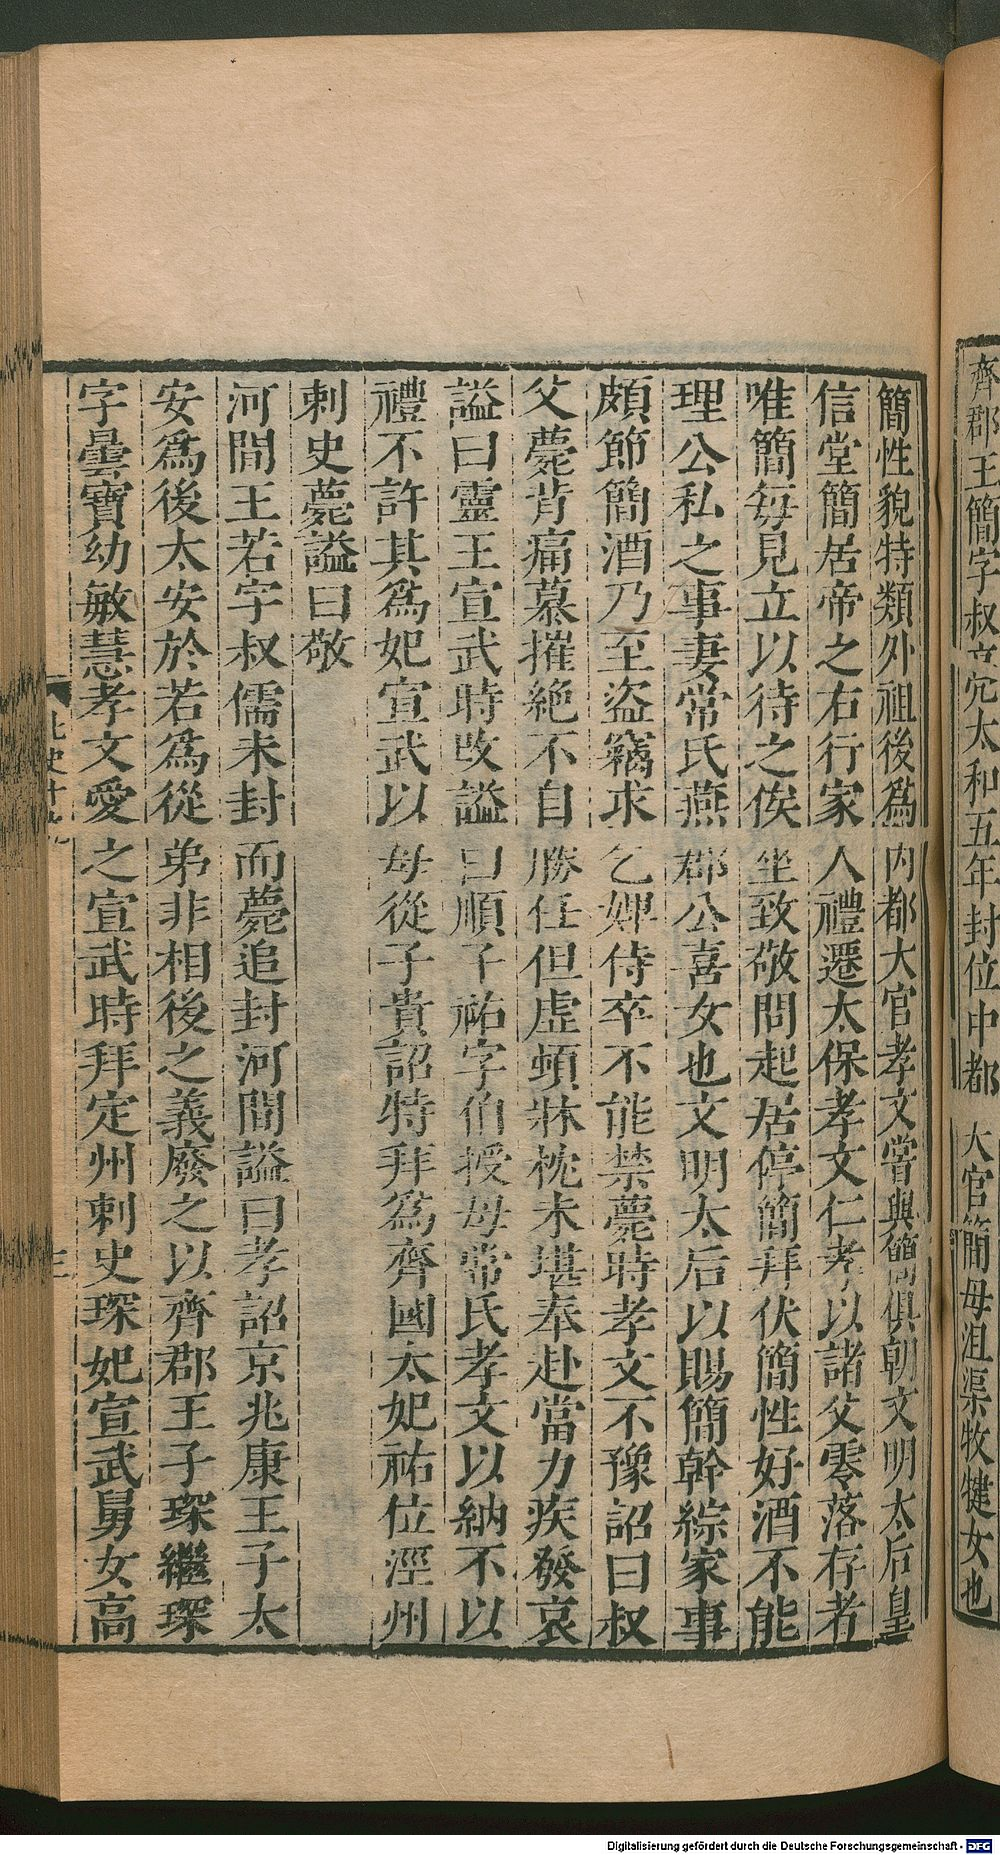 齊郡王簡字叔亮太和五年封位中都大官簡母沮渠牧犍女也
簡性貌特類外祖後爲內都大官孝文嘗與簡俱朝文明太后皇
信堂簡居帝之右行家人禮遷太保孝文仁孝以諸父零落存者
唯簡毎見立以待之俟坐致敬問起居停簡拜伏簡性好酒不能
理公私之事妻常氏燕郡公喜女也文明太后以賜簡幹綜家事
頗節簡酒乃至盜竊求乞婢侍卒不能禁薨時孝文不豫詔曰叔
父薨背痛慕摧絶不自勝任但虛頓牀枕未堪奉赴當力疾發哀
謚曰靈王宣武時改謚曰順子祐字伯授母常氏孝文以納不以
禮不許其爲妃宣武以母從子貴詔特拜爲齊國太妃祐位涇州
刺史薨謚曰敬
河間王若字叔儒未封而薨追封河間謚曰孝詔京兆康王子太
安爲後太安於若爲從弟非相後之義廢之以齊郡王子琛繼琛
字曇寶幼敏慧孝文愛之宣武時拜定州刺史琛妃宣武舅女高
北史十九
三
Digitalisierung gefördert durch die Deutsche Forschungsgemeinschaft - DFG